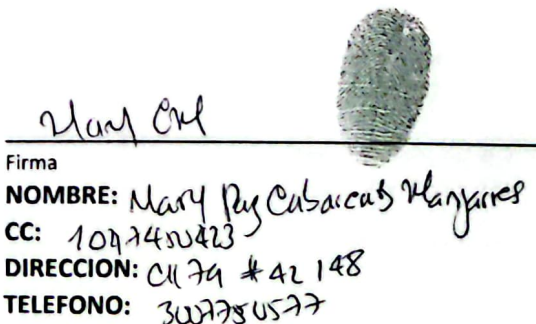 Mary CM
Firma
NOMBRE: Mary Paz Cabarcas Manjarres
CC: 1047450423
DIRECCION: Cll 7a # 42 148
TELEFONO: 3007750577